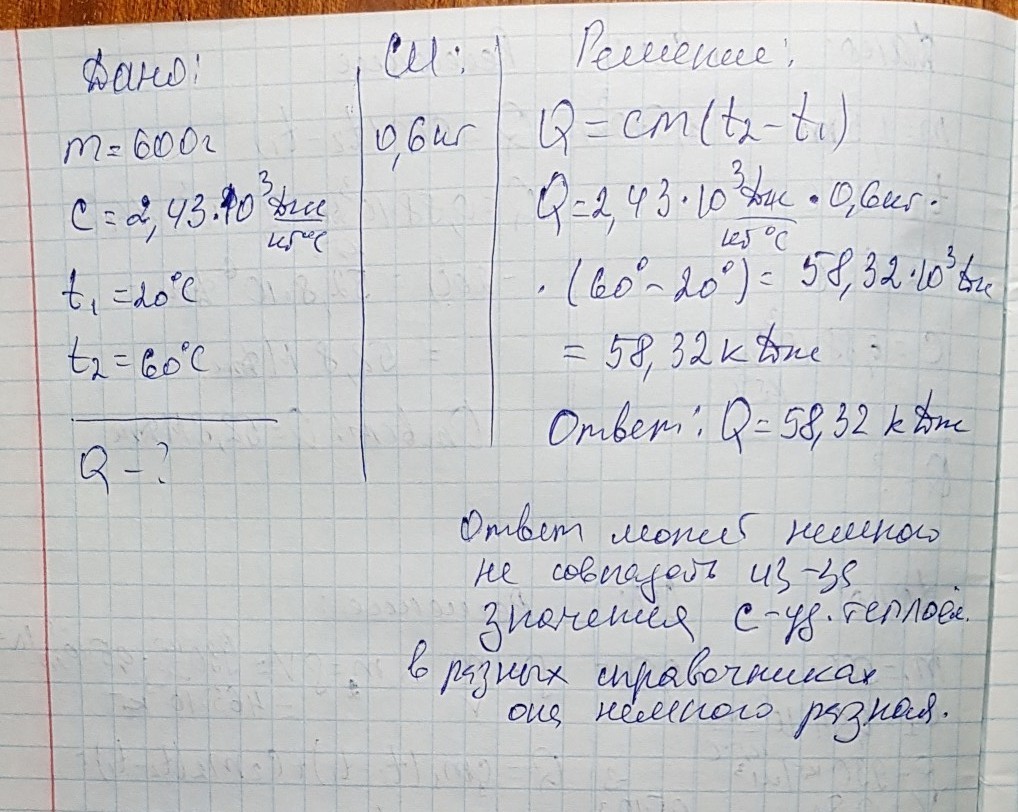 Дано:
m = 600г
c = 2,43·10³ Дж/кг°C
t₁ = 20°C
t₂ = 60°C
Q - ?
СИ:
0,6 кг
Решение:
Q = cm(t₂ - t₁)
Q = 2,43·10³ Дж/кг°C · 0,6 кг ·
· (60° - 20°) = 58,32·10³ Дж
= 58,32 кДж
Ответ: Q = 58,32 кДж
Ответ может немного
не совпадать из-за
значения c - уд. теплоём.
в разных справочниках
она немного разная.